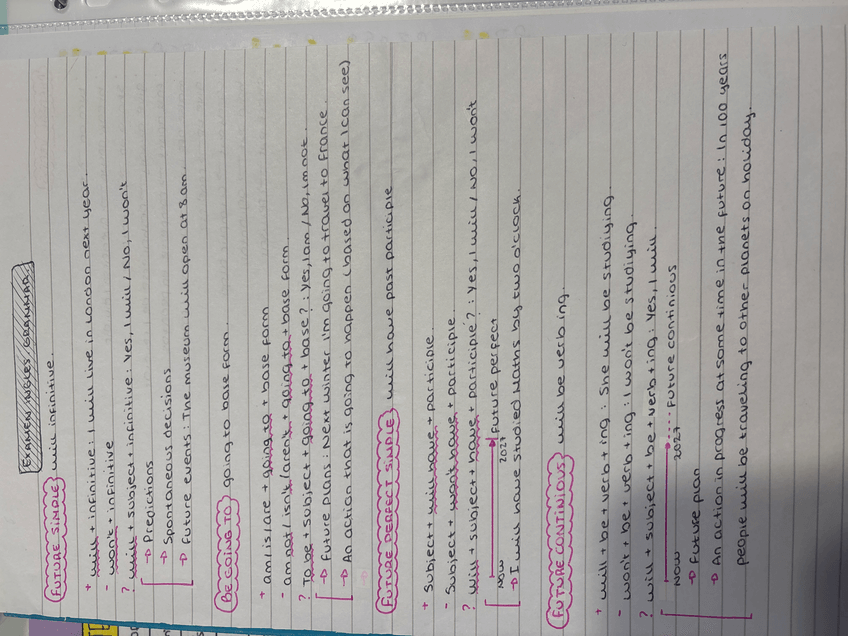 EXAMEN INGLÉS GRAMMAR
FUTURE SIMPLE will infinitive.
+ will + infinitive : I will live in London next year.
- won't + infinitive
? will + subject + infinitive : Yes, I will / No, I won't
→ Predictions
→ Spontaneous decisions
→ Future events : The museum will open at 8am.
BE GOING TO going to base form.
+ am/is/are + going to + base form
- am not/ isn't/aren't + going to + base form.
? To be + subject + going to + base? : Yes, I am / No, I'm not.
→ Future plans : Next winter I'm going to travel to France.
→ An action that is going to happen (based on what I can see)
FUTURE PERFECT SIMPLE will have past participle
+ Subject + will have + participle.
- Subject + won't have + participle.
? Will + subject + have + participle? : Yes, I will / No, I won't
NOW 2027 Future perfect
→ I will have studied Maths by two o'clock.
FUTURE CONTINIOUS will be verb ing.
+ will + be + verb + ing : She will be studiying.
- won't + be + verb + ing : I won't be studiying.
? will + subject + be + verb + ing : Yes, I will.
NOW 2027 Future continious
→ Future plan
→ An action in progress at some time in the future : In 100 years
people will be traveling to other planets on holiday.